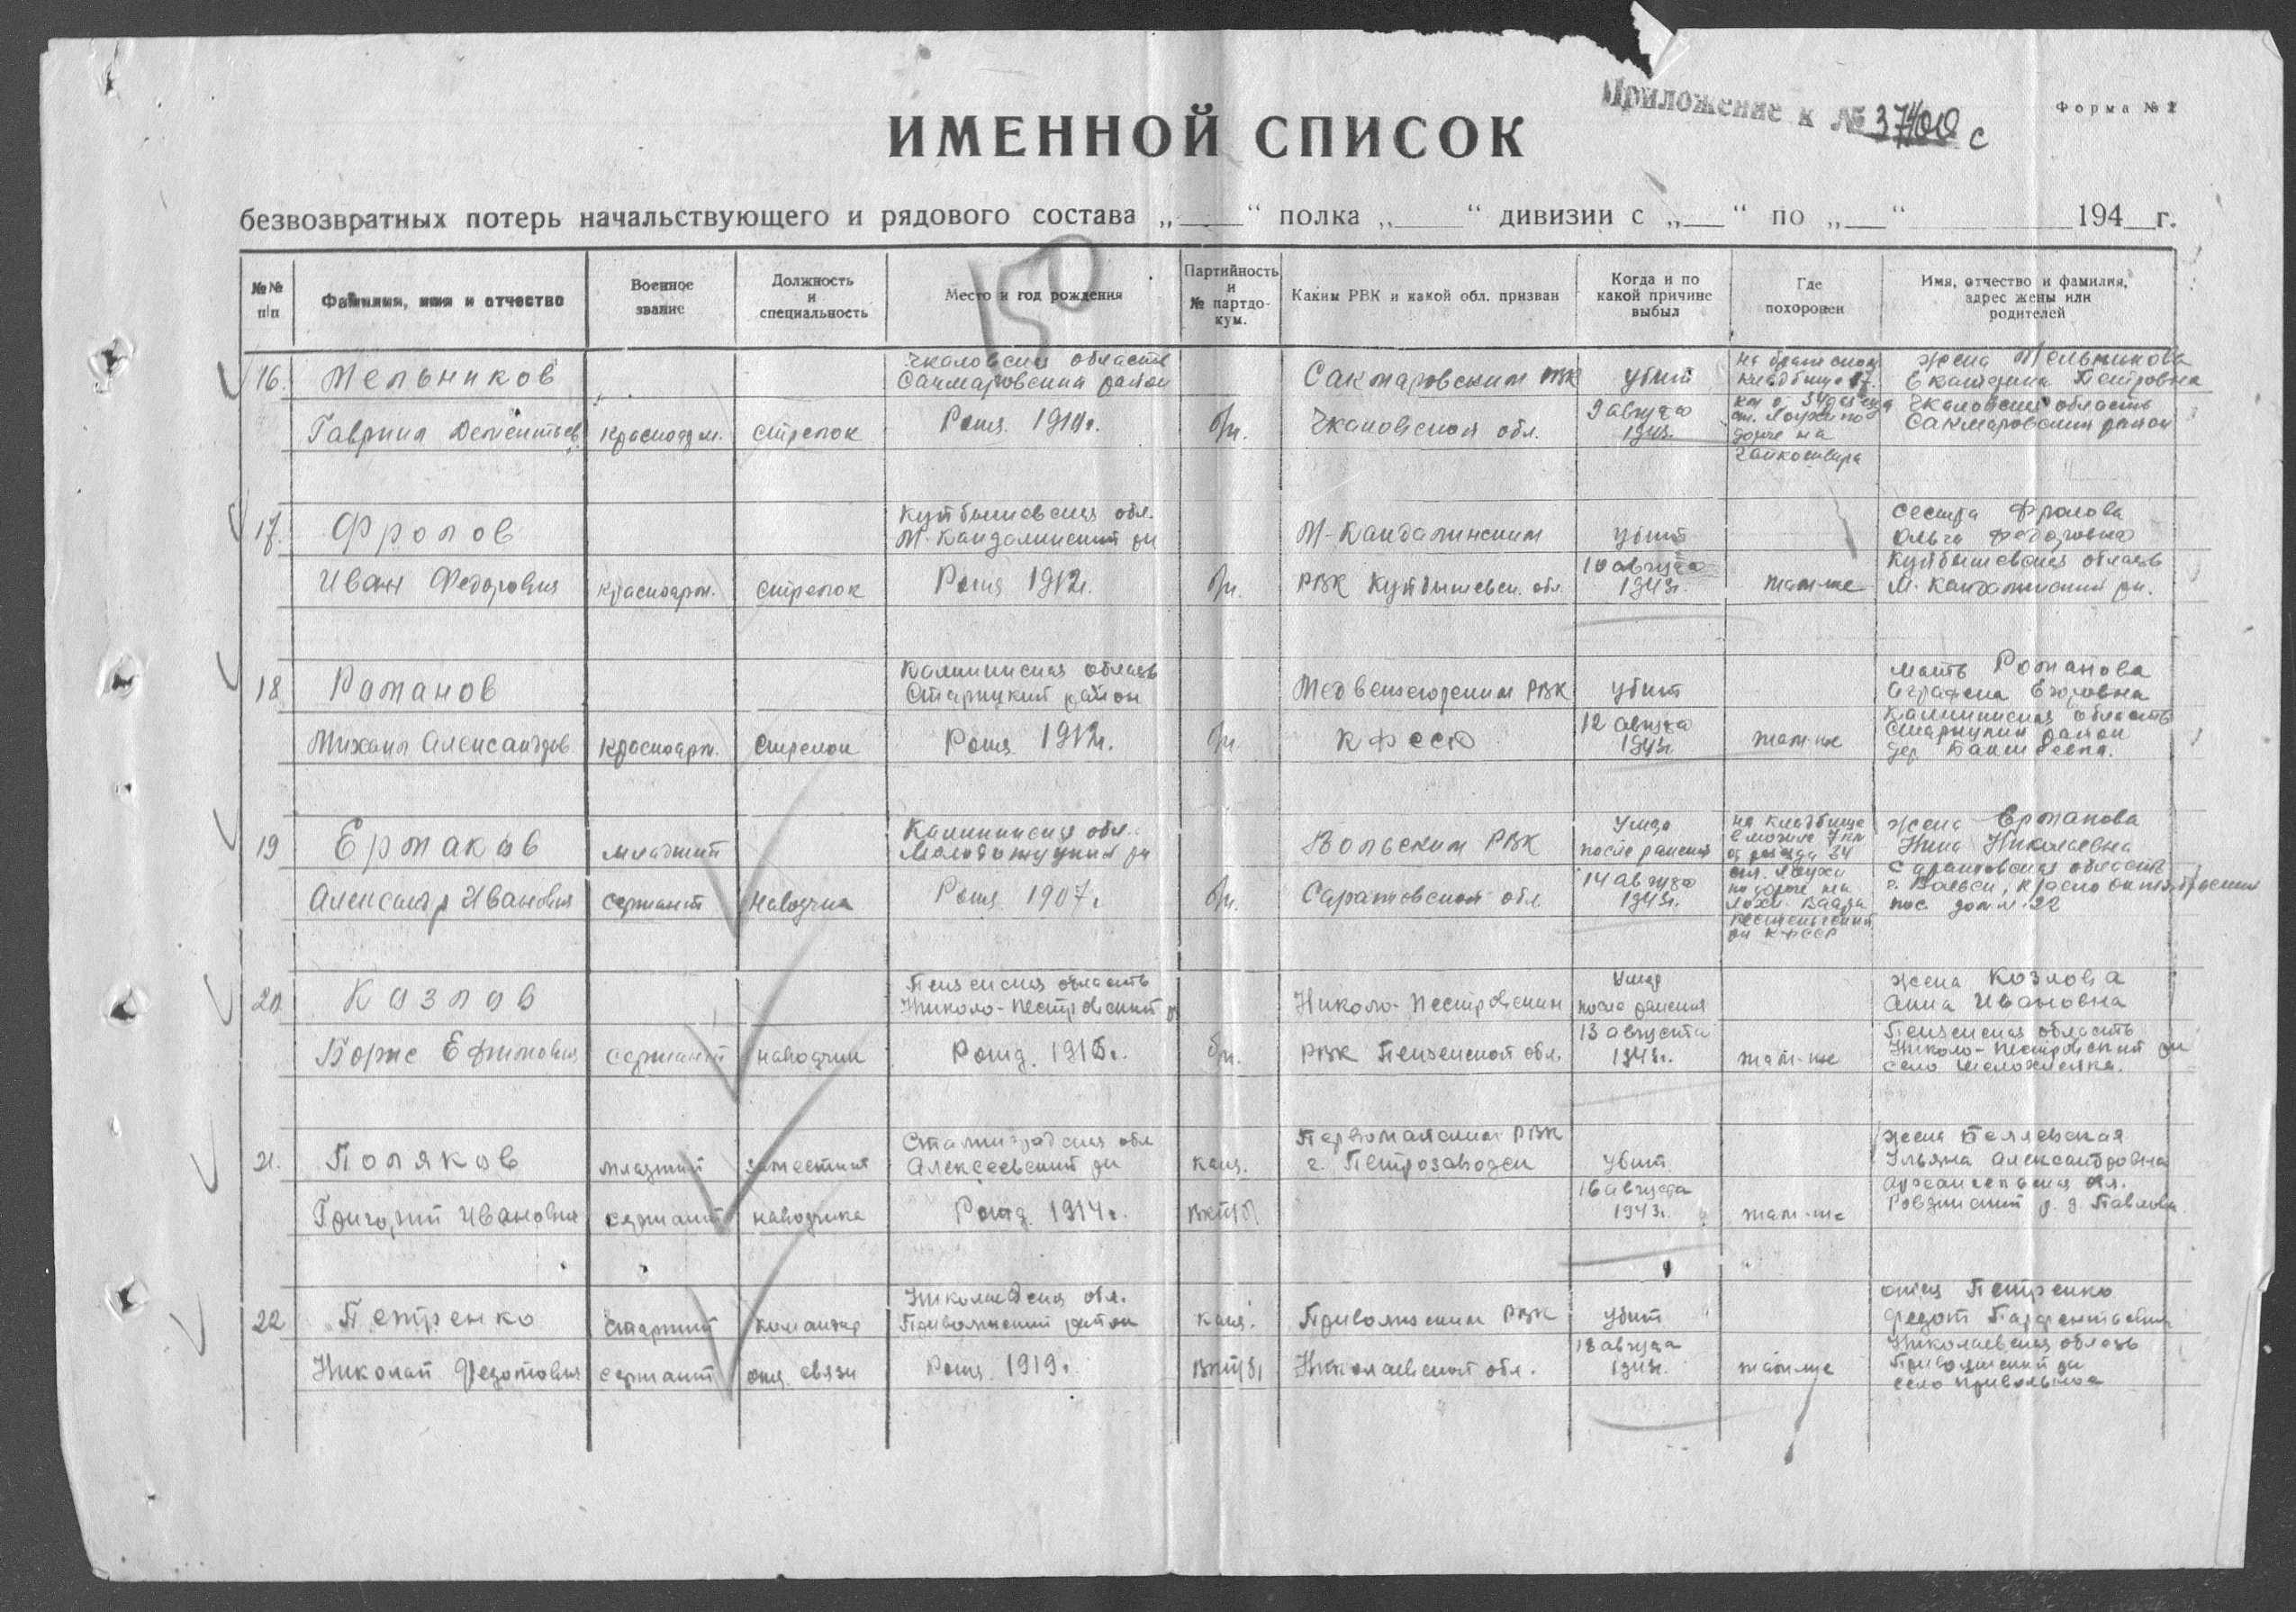 Приложение к № 37400 с
Форма № 2
ИМЕННОЙ СПИСОК
безвозвратных потерь начальствующего и рядового состава „ “ полка „ “ дивизии с „ “ по „ “ 194 г.
150
№№ п/п
Фамилия, имя и отчество
Военное звание
Должность и специальность
Место и год рождения
Партийность и № партдокум.
Каким РВК и какой обл. призван
Когда и по какой причине выбыл
Где похоронен
Имя, отчество и фамилия, адрес жены или родителей
16. Мельников
Гавриил Дементьев.
красноарм.
стрелок
Чкаловская область
Сакмаровский район
Рожд. 1910г.
б/п.
Сакмаровским РВК
Чкаловской обл.
убит
9 августа
1943г.
на братском
кладбище 7
км о 34 раз'езд
ст. Лоухи по
дороге на
жена Мельникова
Екатерина Петровна
Чкаловская область
Сакмаровский район
17. Фролов
Иван Федорович
красноарм.
стрелок
Куйбышевская обл.
М-Кандалинский рн
Рожд 1912г.
б/п.
М-Кандалинским
РВК Куйбышевск. обл.
убит
10 августа
1943г.
там-же
сестра Фролова
Ольга Федоровна
Куйбышевская область
М. Кандалинский рн.
18 Романов
Михаил Александров.
красноарм.
стрелок
Калининская область
Старицкий район
Рожд 1912г.
б/п
Медвежегорским РВК
КФССР
убит
12 августа
1943г.
там-же
мать Романова
Аграфена Егоровна
Калининская область
Старицкий район
дер.
19 Ермаков
Александр Иванович
младший
сержант
наводчик
Калининская обл.
Молодотудский рн
Рожд 1907г.
б/п.
Вольским РВК
Саратовской обл.
умер
после ранения
14 августа
1943г.
на кладбище
в могиле 7 км
о раз'езда 34
ст. Лоухи
по дороге на
Лохи Ваара
Кестеньгский
рн КФССР
жена Ермакова
Нина Николаевна
Саратовская область
г. Вольск, красно октябрьский
пос. дом №22
20 Козлов
Борис Ефимович
сержант
наводчик
Пензенская область
Николо-Пестровский р
Рожд. 1915г.
б/п.
Николо-Пестровским
РВК Пензенской обл.
умер
после ранения
13 августа
1943г.
там-же
жена Козлова
Анна Ивановна
Пензенская область
Николо-Пестровский рн
село
21. Поляков
Григорий Иванович
младший
сержант
заместит
наводчика
Сталинградская обл
Алексеевский рн
Рожд. 1914г.
канд.
ВКП(б)
Первомайским РВК
г. Петрозаводск
убит
16 августа
1943г.
там-же
жена Беляевская
Ульяна Александровна
Архангельская обл.
Ровдинский р. д Павлова
22 Петренко
Николай Федотович
старший
сержант
командир
отд. связи
Николаевская обл.
Привольнский район
Рожд 1919г
канд.
ВКП(б)
Привольнским РВК
Николаевской обл.
убит
18 августа
1943г.
там-же
отец Петренко
Федот Парфентьевич
Николаевская область
Привольнский рн
село Привольное